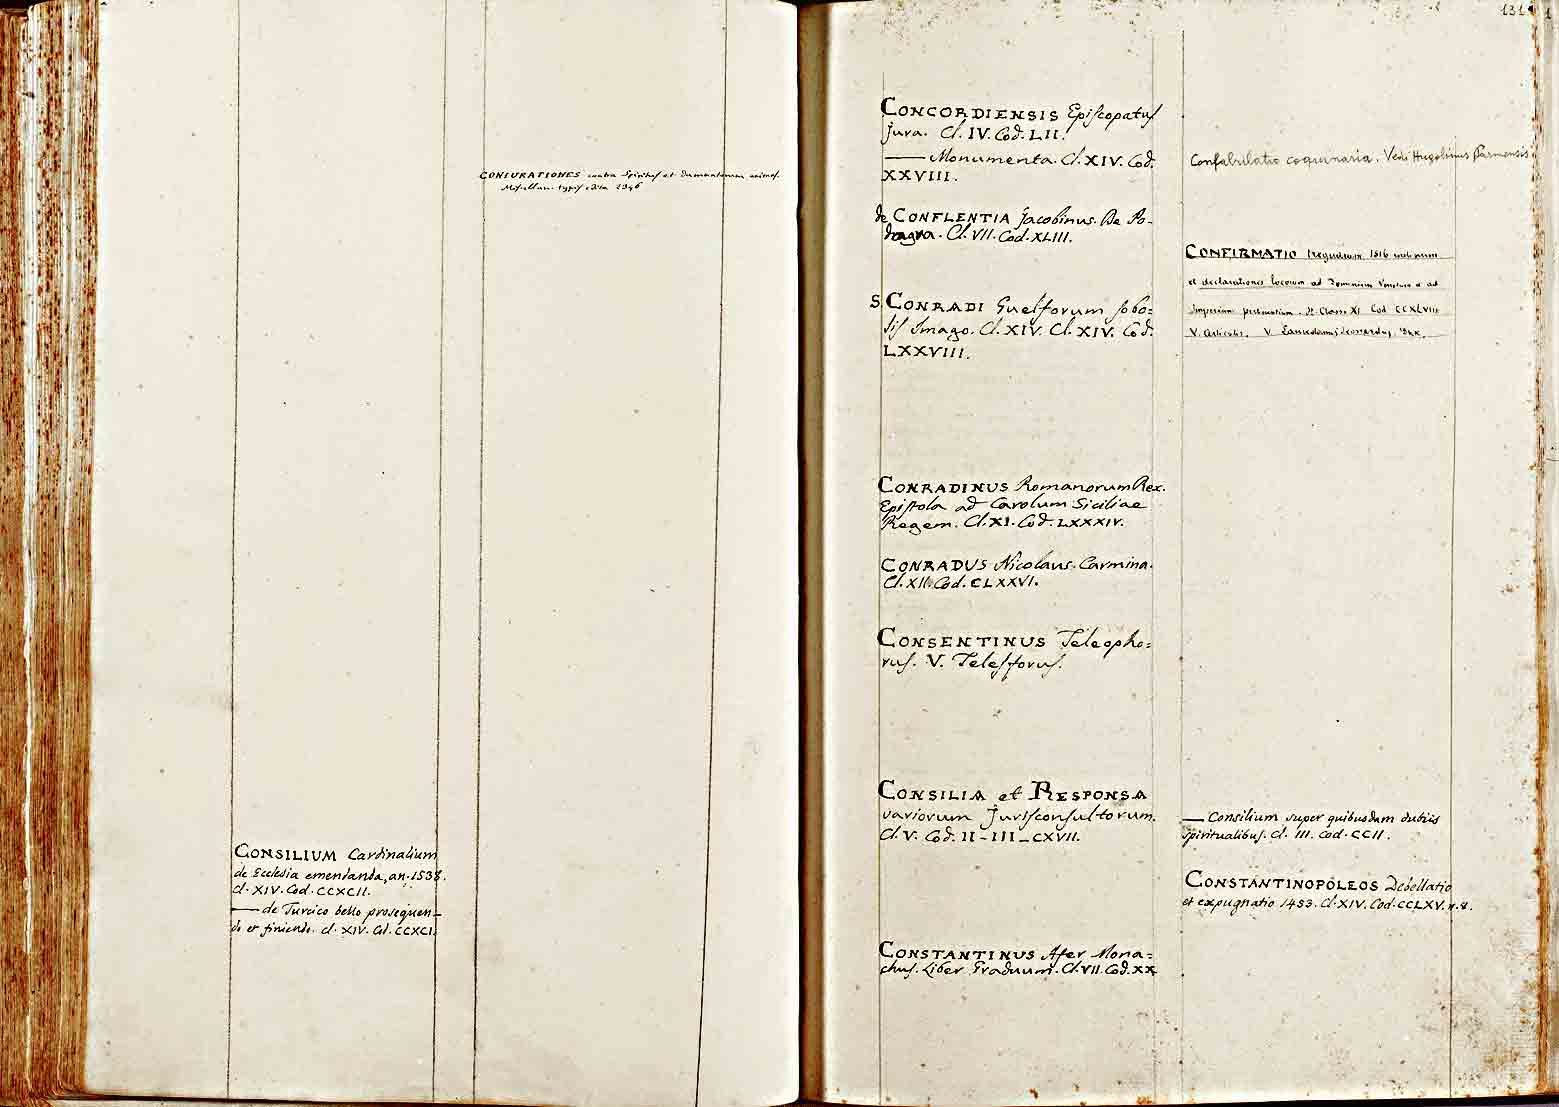 CONIURATIONES contra Spiritus et
Miscellan. typis edita
CONSILIUM Cardinalium
de Ecclesia emendanda, an. 1538.
cl. XIV. Cod. CCXCII.
— de Turcico bello prosequen-
do et finiendo. cl. XIV. Cod. CCXCI.
131
CONCORDIENSIS Episcopatus
jura. Cl. IV. Cod. LII.
— Monumenta. Cl. XIV. Cod.
XXVIII.
de CONFLENTIA Jacobinus. De Po-
dragra. Cl. VII. Cod. XLIII.
S. CONRADI Guelforum sobo=
lis Imago. Cl. XIV. Cl. XIV. Cod.
LXXVIII.
CONRADINUS Romanorum Rex.
Epistola ad Carolum Siciliae
Regem. Cl. XI. Cod. LXXXIV.
CONRADUS Nicolaus. Carmina.
Cl. XII. Cod. CLXXVI.
CONSENTINUS Teleopho=
rus. V. Telesforus.
CONSILIA et RESPONSA
variorum Jurisconsultorum.
Cl. V. Cod. II - III - CXVII.
CONSTANTINUS Afer Mona=
chus. Liber Graduum. Cl. VII. Cod. XX
Confabulatio coquinaria. Vedi Hugolinus Parmensis
CONFIRMATIO 1516
et declarationes locorum ad Dominium Venetum et ad
Imperium pertinentium. Cl. XI Cod CCXLVIII
V. Articuli. V.
— Consilium super quibusdam dubiis
spiritualibus. Cl. III. Cod. CCII.
CONSTANTINOPOLEOS Debellatio
et expugnatio 1453. Cl. XIV. Cod. CCLXV. n. 8.